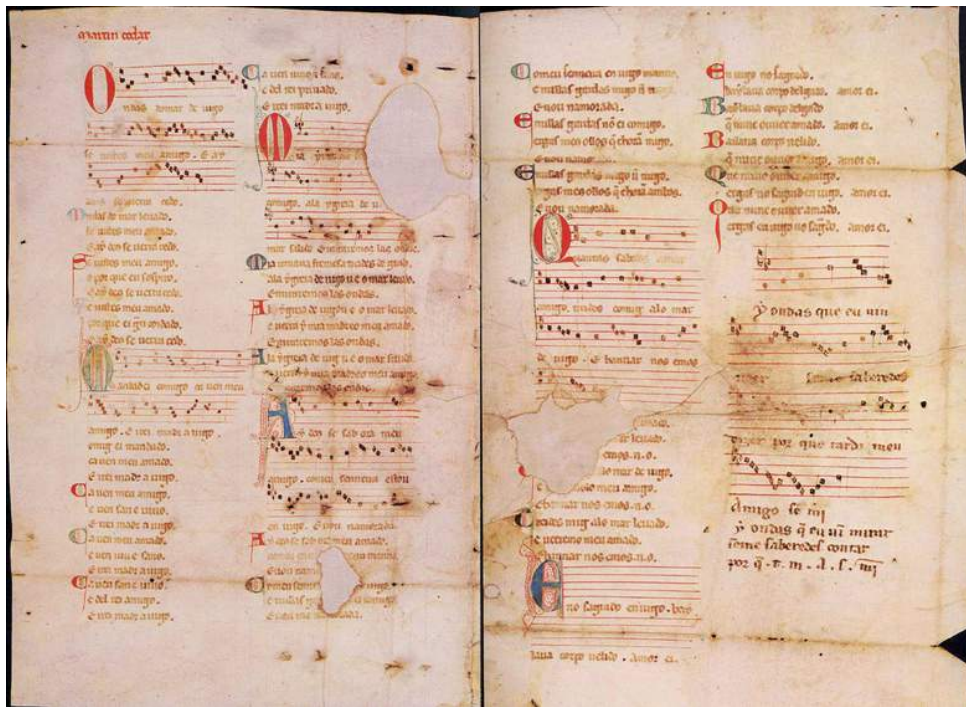 martin codax
Ondas do mar de uigo
se uistes meu amigo. E ay
deus se uerra cedo.
Ondas do mar leuado
se uistes meu amado.
E ay deus se uerra cedo.
Se uistes meu amigo
o por que eu sospiro.
E ay deus se uerra cedo.
Se uistes meu amado
por que ei gran coidado.
E ay deus se uerra cedo.
Mandad ei comigo ca uen meu
amigo. E irei madr a uigo.
Comig ei mandado.
ca uen meu amado.
E irei madr a uigo.
Ca uen meu amigo.
e uen san e uiuo.
E irei madr a uigo.
Ca uen meu amado.
e uen uiu e sano.
E irei madr a uigo.
Ca uen san e uiuo.
e del rei amigo.
E irei madr a uigo.
Ca uen uiuo e sano.
e del rei priuado.
E irei madr a uigo.
Mia yrmana
comigo. ala ygreia de u
mar salido. E miraremos las ondas.
Mia irmana fremosa treides de grado.
ala ygreia de uigo u e o mar leuado.
E miraremos las ondas.
Ala ygreia de uigo u e o mar leuado.
e uerra y mia madre o meu amado.
E miraremos las ondas.
Ala ygreia de uig u e o mar salido.
e uerra y mia madre o meu amigo.
E miraremos las ondas.
Ay deus se sab ora meu
amigo. com eu senneira estou
en uigo. E uou namorada.
Ay deus se sab ora meu amado.
com eu
E uou namorada.
Com eu senneira
e nullas gardas comigo.
E uou namorada.
Com eu senneira en uigo manno.
e nullas gardas migo
E uou namorada.
E nullas gardas non ei comigo.
ergas meus ollos que choran migo.
E uou namorada.
E nullas gardas migo
ergas meus ollos que choran ambos.
E uou namorada.
Quantas sabedes amar
amigo. treides comig alo mar
de uigo. E bannar nos emos
amado.
mar leuado.
emos. n. o.
lo mar de uigo.
e ueeremolo meu amigo.
E bannar nos emos. n. o.
Treides mig alo mar leuado.
e ueeremo meu amado.
E bannar nos emos. n. o.
Eno sagrado en uigo. bay
laua corpo uelido. Amor ei.
En uigo no sagrado.
baylaua corpo delgado. amor ei.
Baylaua corpo delgado
q nunc ouuer amado. Amor ei.
Bailaua corpo uelido.
q nunc ouuer amigo. Amor ei.
Que nunc ouuer amigo.
ergas no sagrad en uigo. Amor ei.
Que nunc ouuer amado.
ergas en uigo no sagrado. Amor ei.
y ondas que eu uin
ueer se me saberedes
dizer por que tarda meu
Amigo sen mi
y ondas q eu uin mirar
se me saberedes contar
por q. t. m. A. s. mi